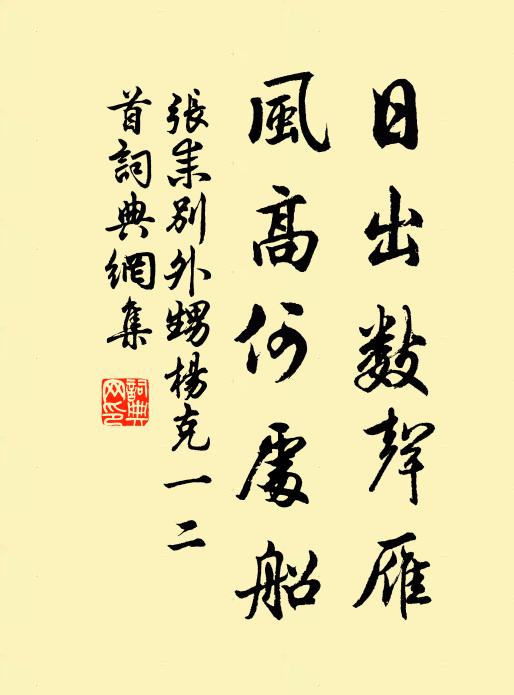 日出数聲雁
風高何處船
張耒別外甥楊克一二
首詞典網集
詞典
网印